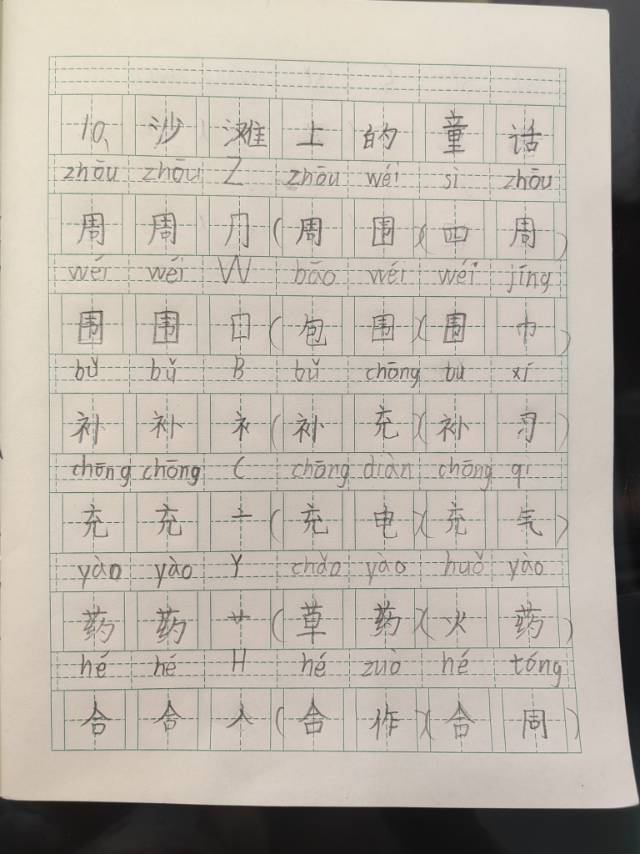 10、沙滩上的童话
zhōu zhōu Z zhōu wéi sì zhōu
周 周 冂 ( 周 围 )( 四 周 )
wéi wéi W bāo wéi wéi jīng
围 围 囗 ( 包 围 )( 围 巾 )
bǔ bǔ B bǔ chōng bu xí
补 补 衤 ( 补 充 )( 补 习 )
chōng chōng C chōng diàn chōng qì
充 充 亠 ( 充 电 )( 充 气 )
yào yào Y chǎo yào huǒ yào
药 药 艹 ( 草 药 )( 火 药 )
hé hé H hé zuò hé tóng
合 合 人 ( 合 作 )( 合 同 )